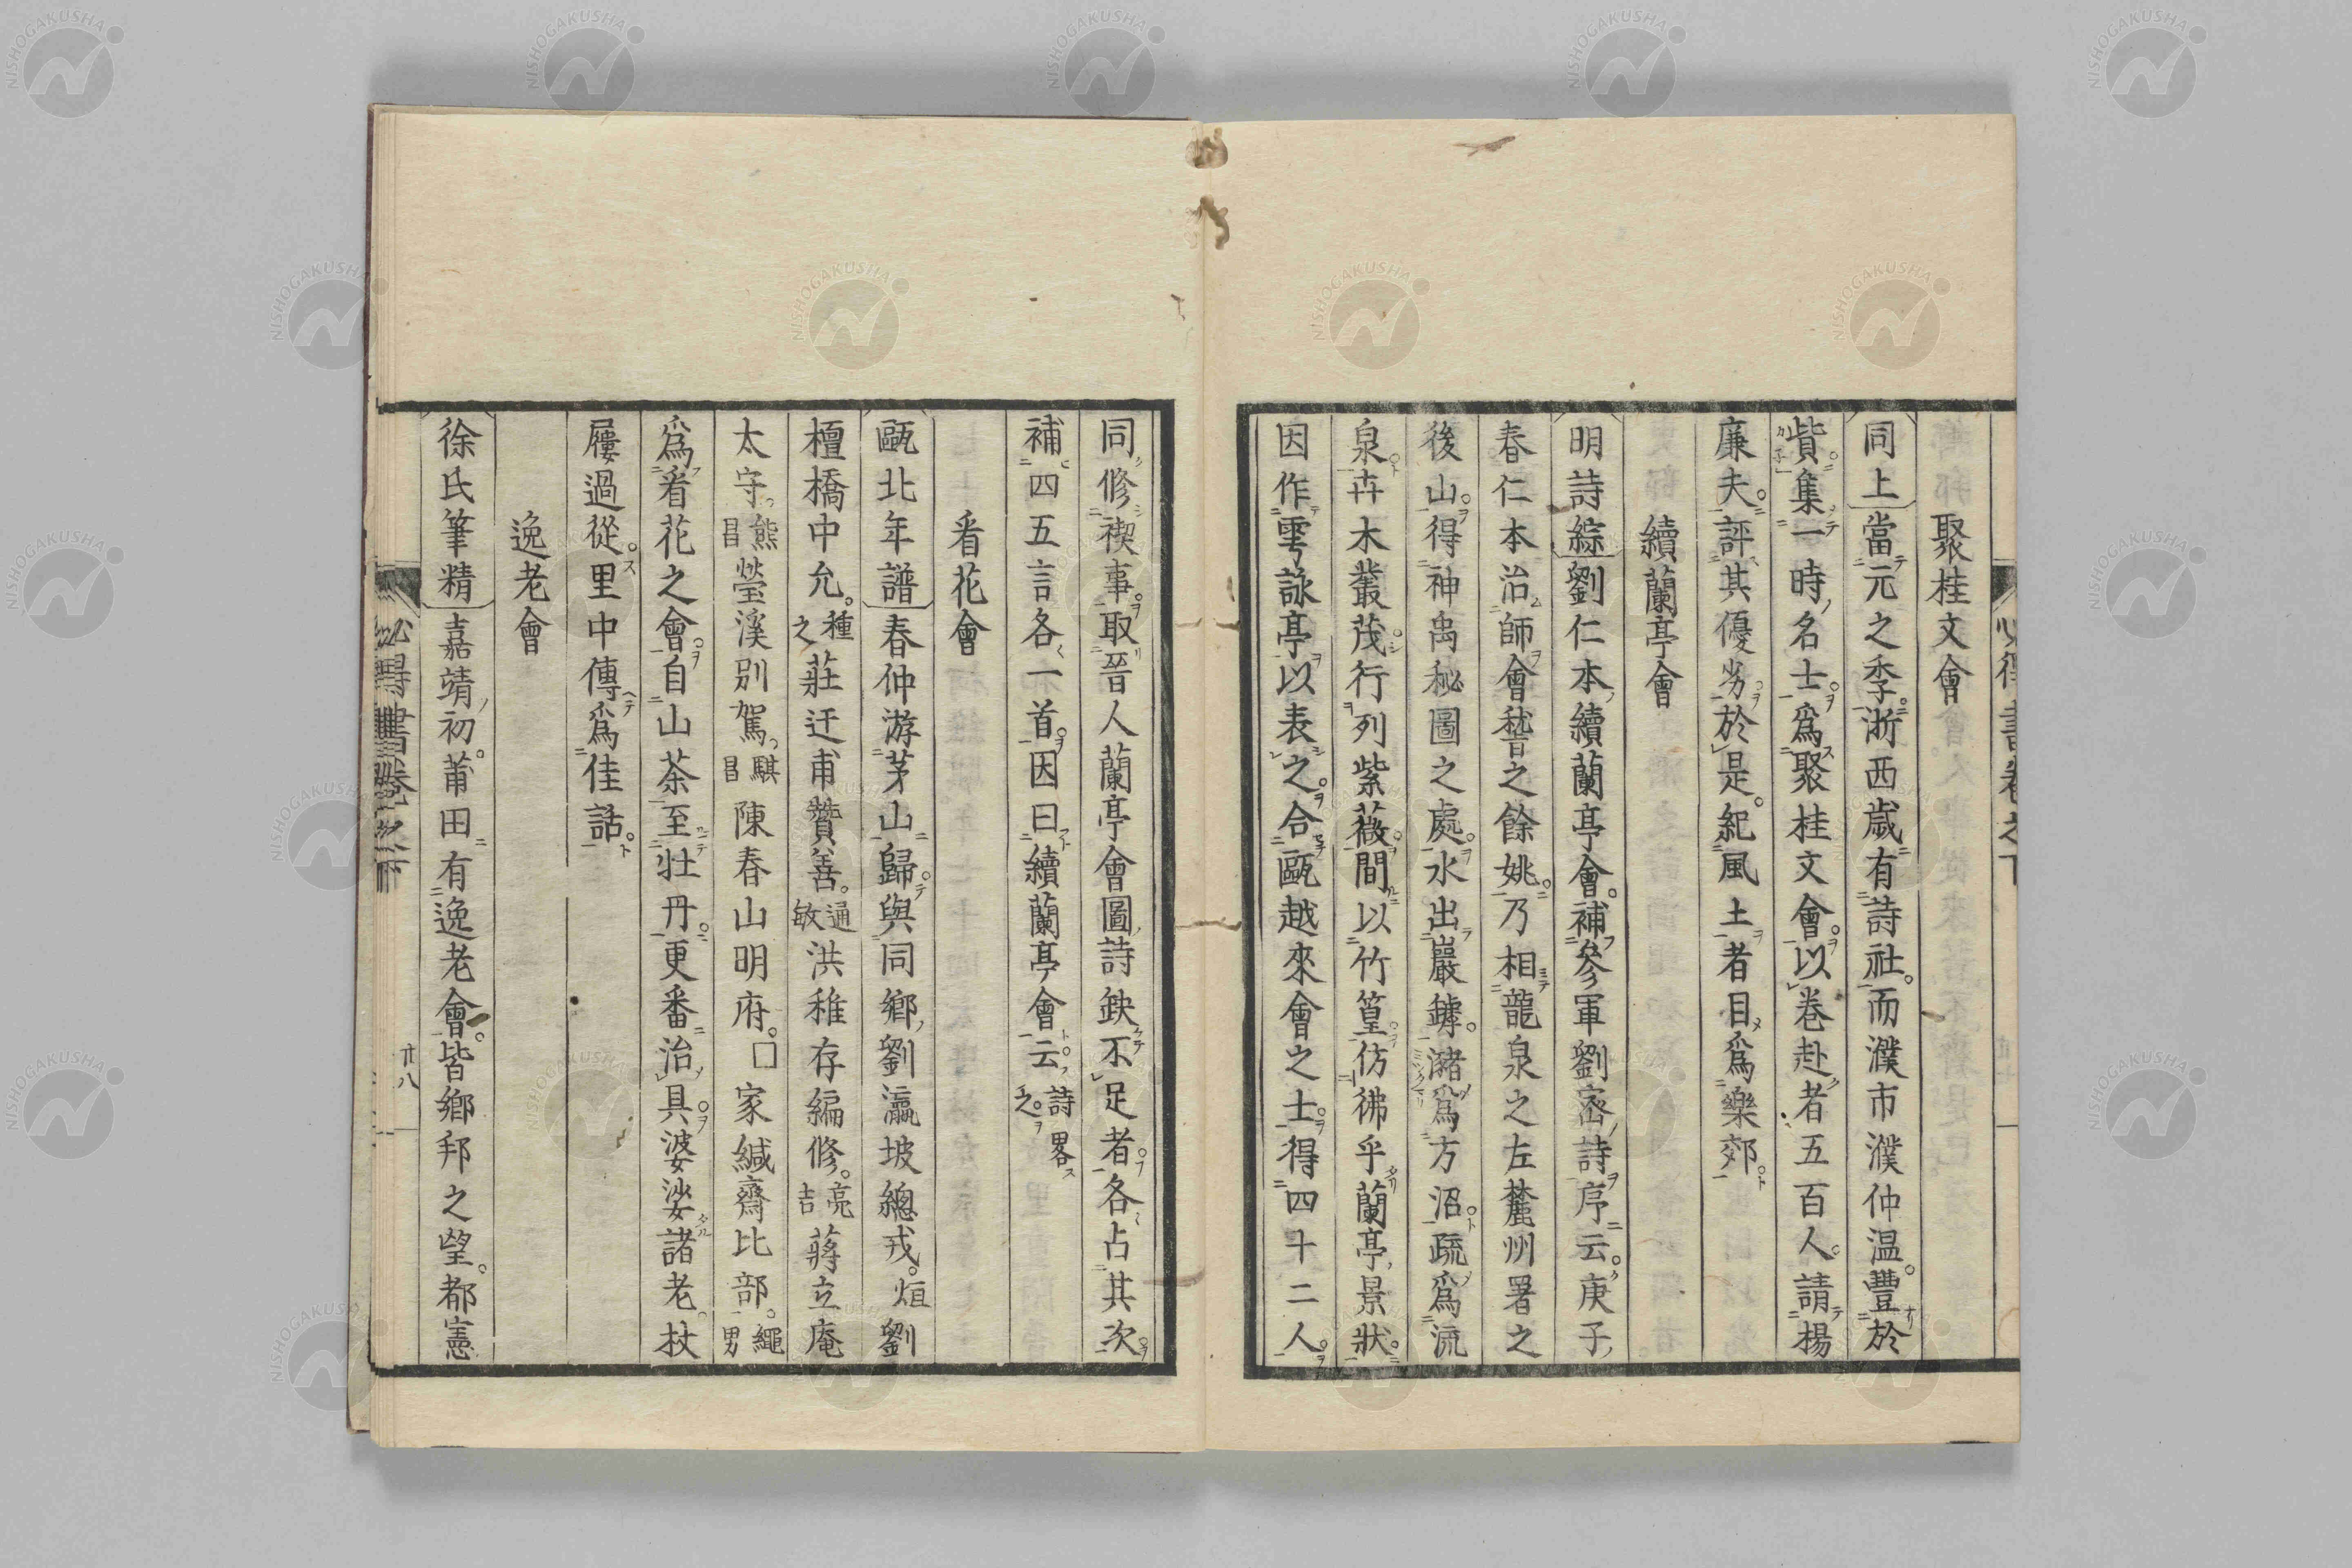 聚桂文會
同上當元之季浙西歲有詩社而濮市濮仲温豐於
貲集一時名士爲聚桂文會以卷赴者五百人請楊
廉夫評其優劣於是紀風土者目爲樂郊
續蘭亭會
明詩綜劉仁本續蘭亭會補參軍劉密詩序云庚子
春仁本治師會稽之餘姚乃相龍泉之左麓州署之
後山得神禹秘圖之處水出巖罅瀦爲方沼疏爲流
泉卉木叢茂行列紫薇間以竹篁仿彿乎蘭亭景狀
因作雩詠亭以表之合甌越來會之士得四十二人
同修禊事取晉人蘭亭會圖詩缺不足者各占其次
補四五言各一首因曰續蘭亭會云詩畧之
看花會
甌北年譜春仲游茅山歸與同鄉劉瀛坡總戎烜劉
檀橋中允種之莊迂甫贊善通敏洪稚存編修亮吉蔣立庵
太守熊昌瑩溪別駕騏昌陳春山明府□家緘齋比部繩男
爲看花之會自山茶至牡丹更番治具婆娑諸老杖
屨過從里中傳爲佳話
逸老會
徐氏筆精嘉靖初莆田有逸老會皆鄉邦之望都憲
必得書卷之下
廿八